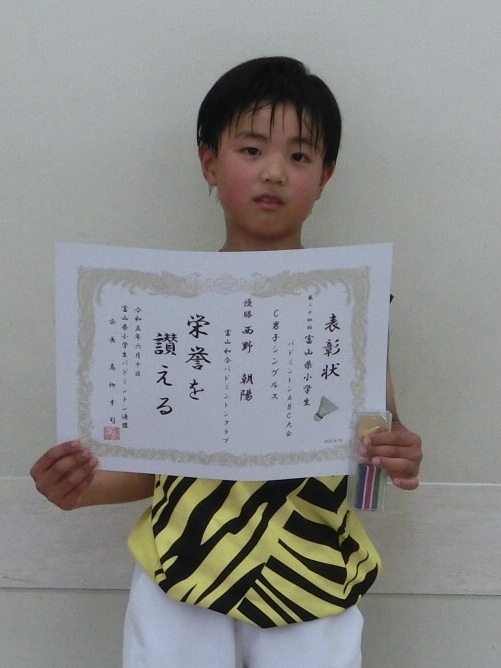 表彰状
第二十四回 富山県小学生
バドミントンABC大会
C男子シングルス
優勝 西野 朝陽
富山和合バドミントンクラブ
栄誉を
讃える
令和五年六月十日
富山県小学生バドミントン連盟
会長